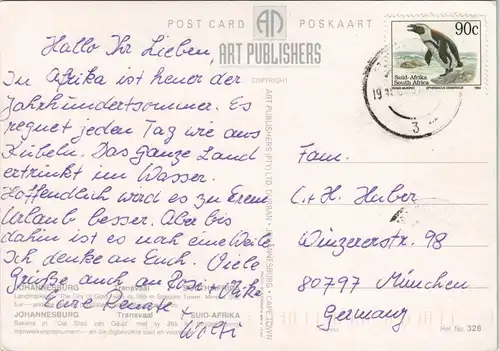 POST CARD AP POSKAART
ART PUBLISHERS
COPYRIGHT
90c
Suid-Afrika
South Africa
Hallo Ihr Lieben,
In Afrika ist heuer der
Jahrhundertsommer. Es
regnet jeden Tag wie aus
Kübeln. Das ganze Land
ertrinkt im Wasser.
Hoffentlich wird es zu Eurem
Urlaub besser. Aber bis
dahin ist es noch eine Weile
Ich denke an Euch. Viele
Grüße auch an
Eure Renate +
Fam.
C.+ H. Huber
Winzererstr. 98
80797 München
Germany
JOHANNESBURG Transvaal
JOHANNESBURG Transvaal SUID-AFRIKA
ART PUBLISHERS (PTY) LTD. DURBAN JOHANNESBURG CAPE TOWN
Ref. No. 328